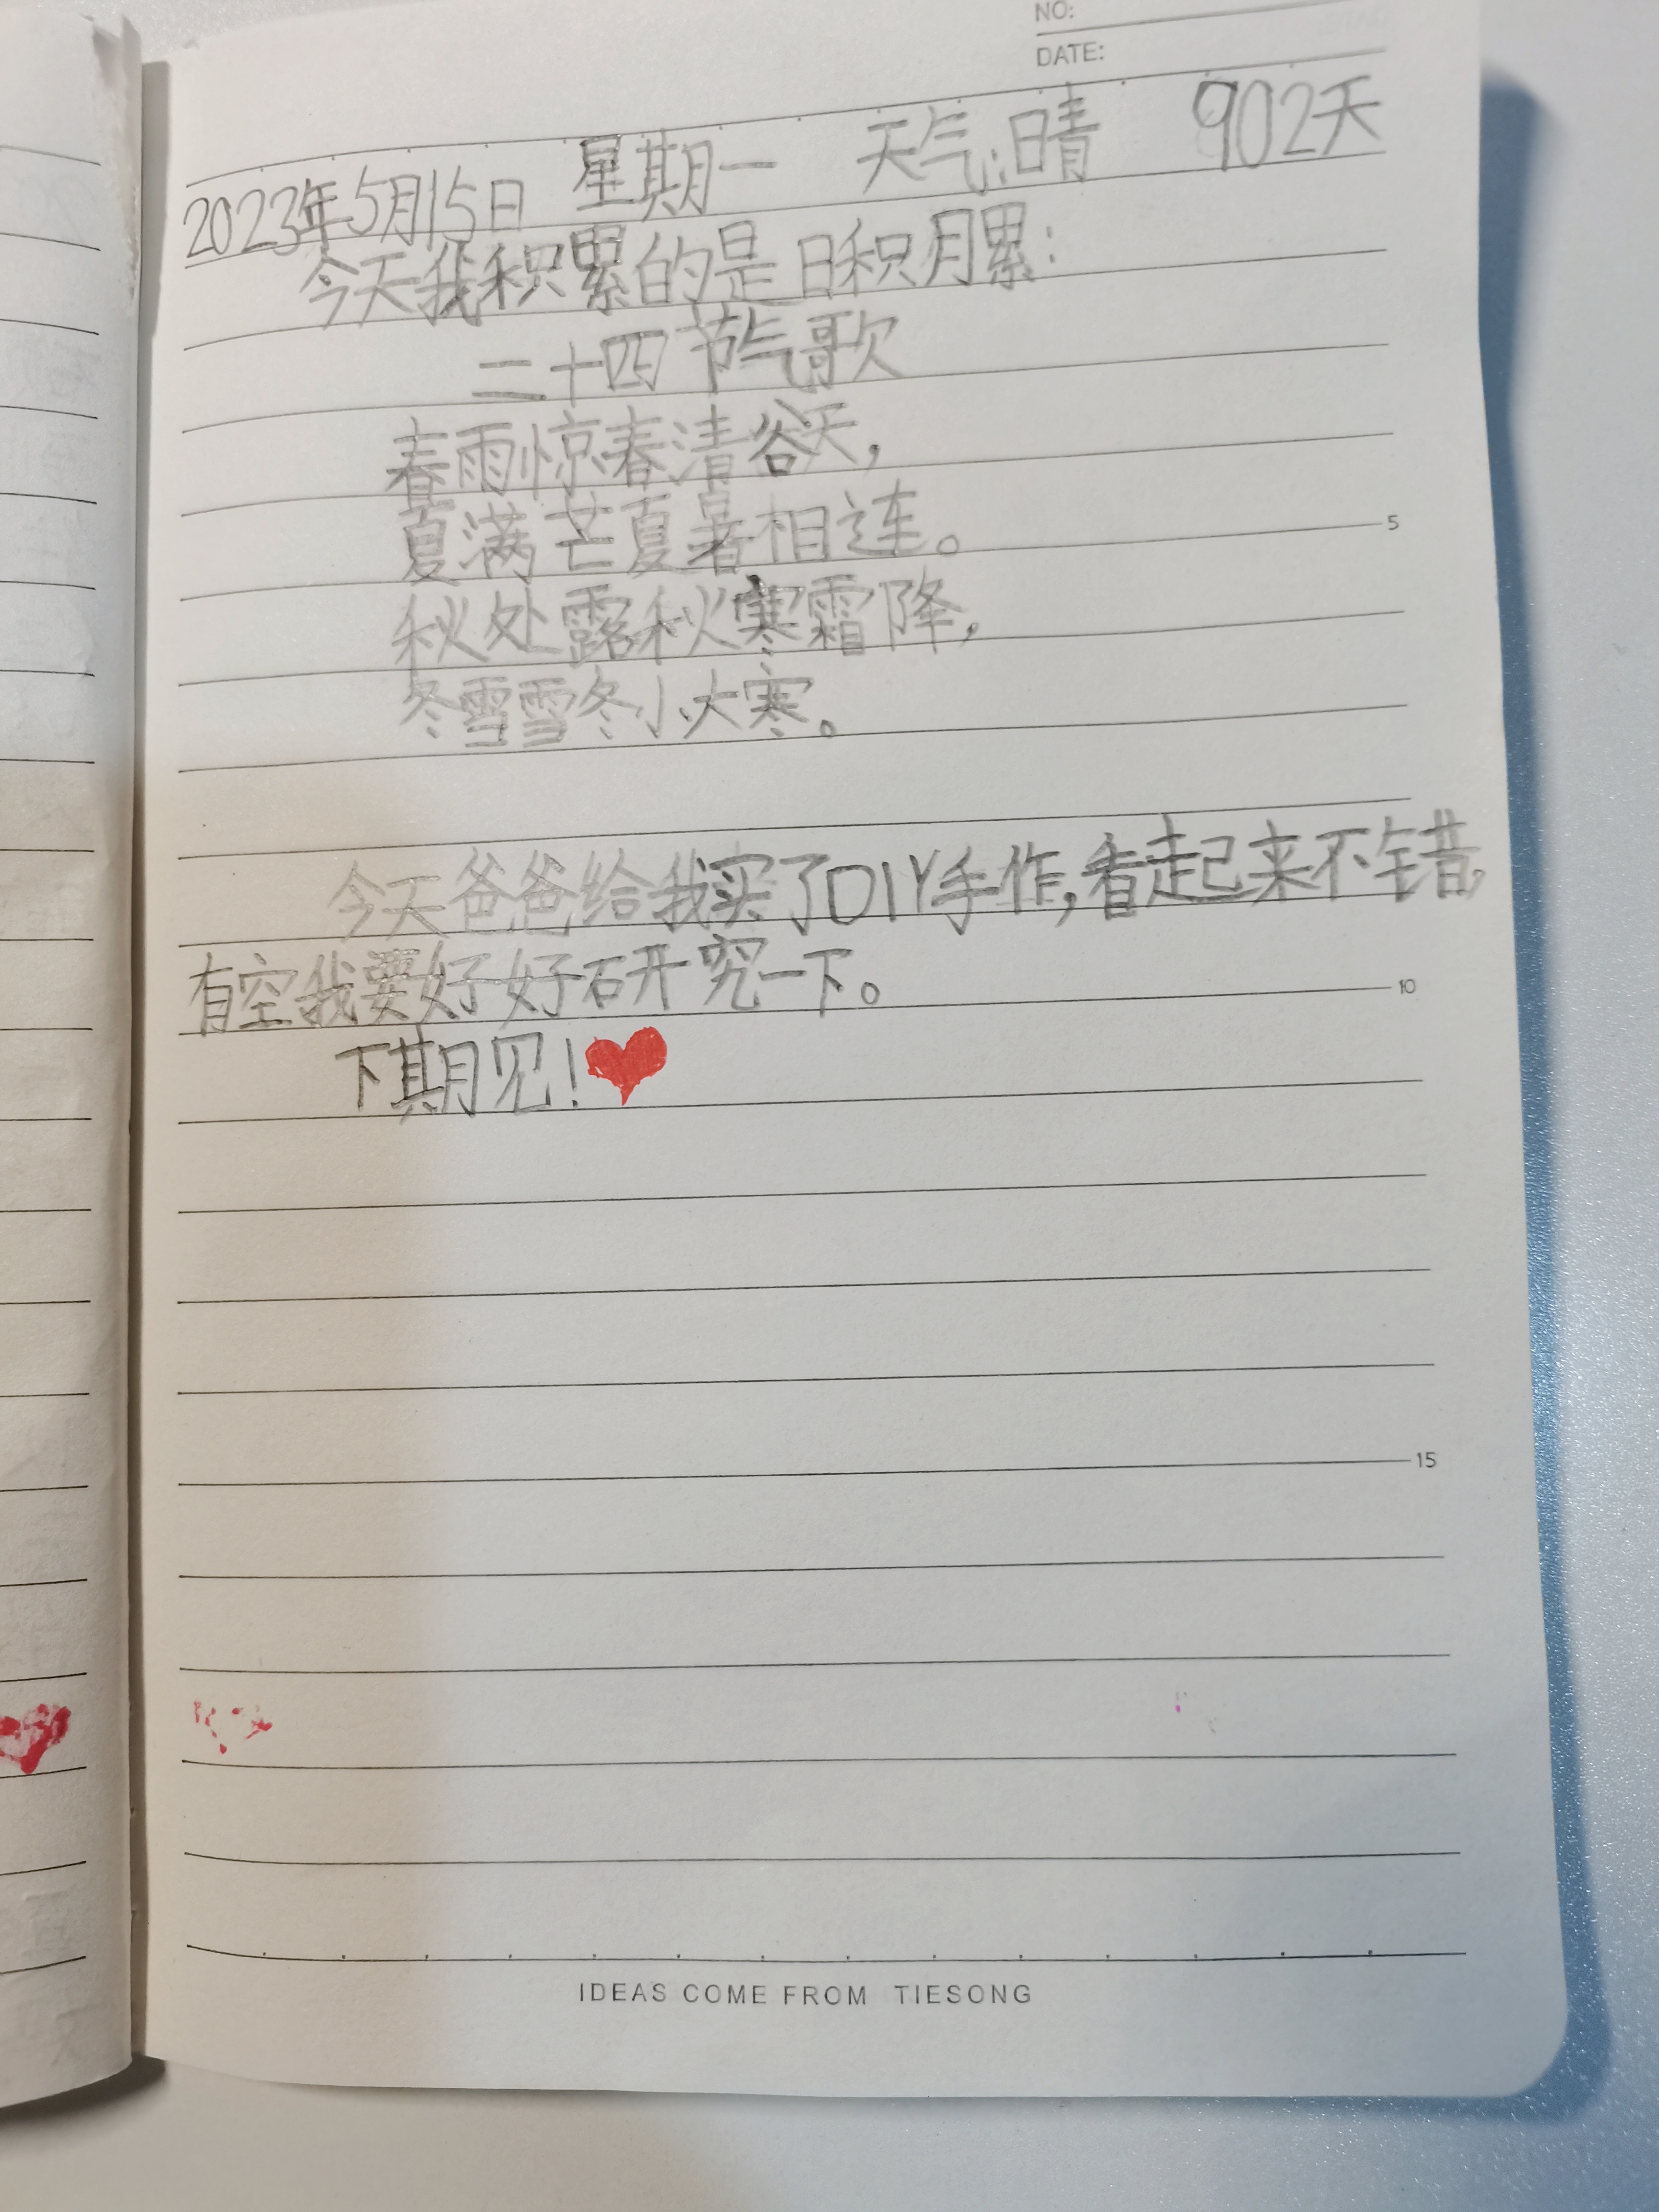 NO:
DATE:
2023年5月15日 星期一 天气:晴 902天
今天我积累的是日积月累:
二十四节气歌
春雨惊春清谷天,
夏满芒夏暑相连。
秋处露秋寒霜降,
冬雪雪冬小大寒。
5
今天爸爸给我买了DIY手作,看起来不错,
有空我要好好研究一下。
10
下期见!
15
IDEAS COME FROM TIESONG